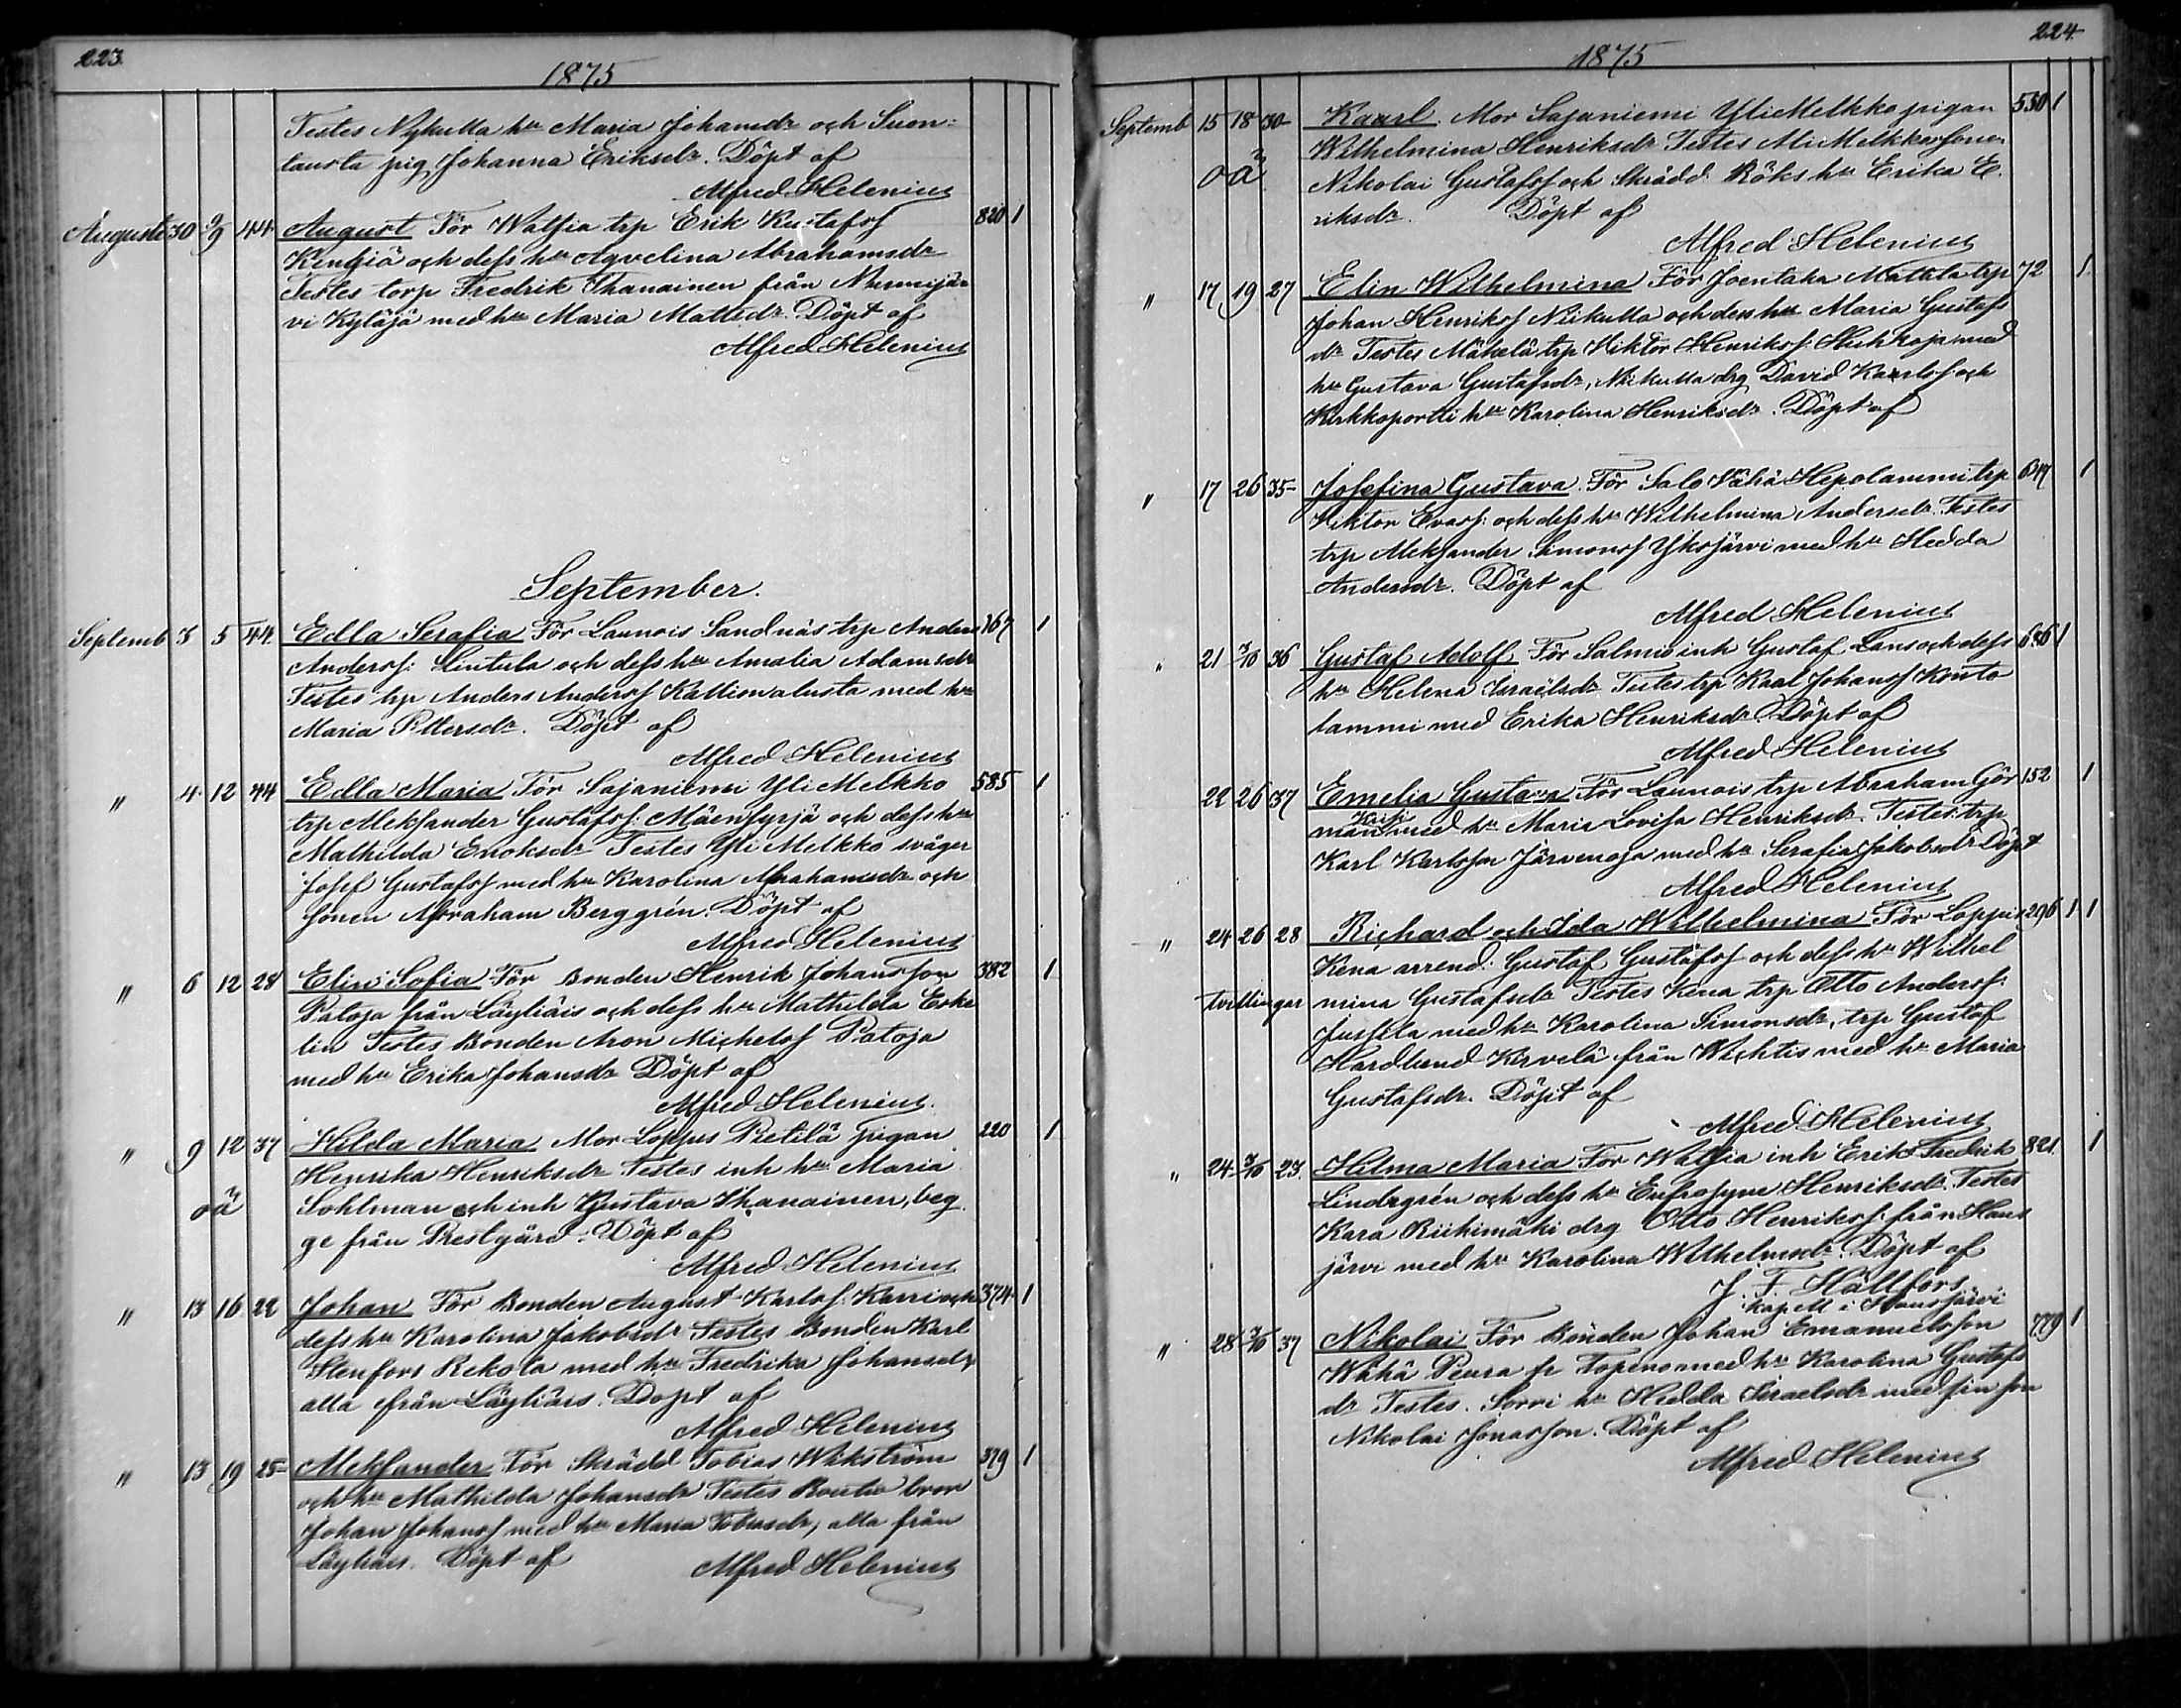 223.
1875
Testes Nykulla hu Maria Johansdr och Suon-
tausta pig Johanna Eriksdr. Döpt af
Alfred Helenius
Augusti 30 5/9 44 August För Walfia trp Erik Kustafss 820 1
och dess hu Aqvelina Abrahamsdr
Testes torp Fredrik Ihanainen från Nurmijär-
vi Kyläjä med hu Maria Mattsdr. Döpt af
Alfred Helenius
September.
Septemb 3 5 44. Edla Serafia För Launois Sandnäs trp Anders 167 1
Anderss: Hintula och dess hu Amalia Adamsdr
Testes trp Anders Anderss Kallionalusta med hu
Maria Pettersdr. Döpt af
Alfred Helenius
" 4. 12 44 Edla Maria För Sajaniemi Yli Melkko 585 1
trp Aleksander Gustafss: Mäensyrjä och dess hu
Mathilda Enoksdr Testes Yli Melkko svåger
Josef Gustafss med hu Karolina Abrahamsdr och
sonen Abraham Berggrén. Döpt af
Alfred Helenius
" 6 12 28 Elin Sofia För Bonden Henrik Johansson 382 1
Patoja från Läyliäis och dess hu Mathilda Erke
lin Testes Bonden Aron Michelss Patoja
med hu Erika Johansdr Döpt af
Alfred Helenius.
" 9 12 37 Hilda Maria Mor Loppis Pietilä pigan 220 1
Henrika Henriksdr Testes inh hu Maria
oä Sohlman och inh Gustava Ihanainen, beg
ge från Prestgård. Döpt af
Alfred Helenius
" 13 16 22 Johan För Bonden August Karlss: Karri och 374 1
dess hu Karolina Jakobsdr Testes Bonden Karl
Stenfors Rekola med hu Fredrika Johansdr
alla från Läyliäis. Döpt af
Alfred Helenius
" 13 19 25 Aleksander För Skrädd Tobias Wikström 379 1
och hu Mathilda Johansdr Testes Routio bror
Johan Johanss med hu Maria Tobiasdr, alla från
Läyliäis. Döpt af Alfred Helenius
224.
1875
Septemb 15 18 30 Kaarl Mor Sajaniemi Yli Melkko pigan 530 1
Wilhelmina Henriksdr Testes Ali Melkko sonen
oä Nikolai Gustafss och Skrädd. Röks hu Erika E.
riksdr. Döpt af
Alfred Helenius
" 17 19 27 Elin Wilhelmina För Joentaka Mattila trp 72 1
Johan Henrikss Niikulla och dess hu Maria Gustafs
dr Testes Mäkelä trp Viktor Henrikss: Huhkoja med
hu Gustava Gustafsdr, Niikulla drg David Karlss och
Kirkkoportti hu Karolina Henriksdr. Döpt af
" 17 26 35 Josefina Gustava. För Salo Vähä Hepolammi trp 647 1
Viktor Evass: och dess hu Wilhelmina Andersdr. Testes
trp Aleksander Simonss Yksjärvi med hu Hedda
Andersdr. Döpt af
Alfred Helenius
" 21 3/10 36 Gustaf Adolf För Salmis inh Gustaf Lans och dess 686 1
hu Helena Israelsdr Testes trp Kaal Johanss Konto
lammi med Erika Henriksdr Döpt af
Alfred Helenius
" 22 26 37 Emelia Gustava För Launois trp Abraham Gör 152 1
man med hu Maria Lovisa Henriksdr. Testes trp
Karl Karlsson Järvenoja med hu Serafia Jakobsdr Döpt
Alfred Helenius
" 24 26 28 Richard och Ida Wilhelmina För Loppis 296 1 1
Kena arrend. Gustaf Gustafss och dess hu Wilhel
tvillingar mina Gustafsdr Testes Kena trp Otto Anderss:
Jussila med hu Karolina Simonsdr, trp Gustaf
Hardlund Kirvelä från Wichtis med hu Maria
Gustafsdr. Döpt af
Alfred Helenius
" 24 3/10 23. Hilma Maria För Walfia inh Erik Fredrik 821. 1
Lindrgrén och dess hu Eufrosyne Henriksdr. Testes
Kara Riihimäki drg Otto Henrikss från Haus
järvi med hu Karolina Wilhelmsdr. Döpt af
J. F. Hällfors
kapell i Hausjärvi
" 28 3/10 37 Nikolai För Bonden Johan Emanuelsson 779 1
Wähä Peura fr Topeno med hu Karolina Gustafs
dr Testes. Sorvi hu Hedda Israelsdr med sin son
Nikolai Jonasson. Döpt af
Alfred Helenius